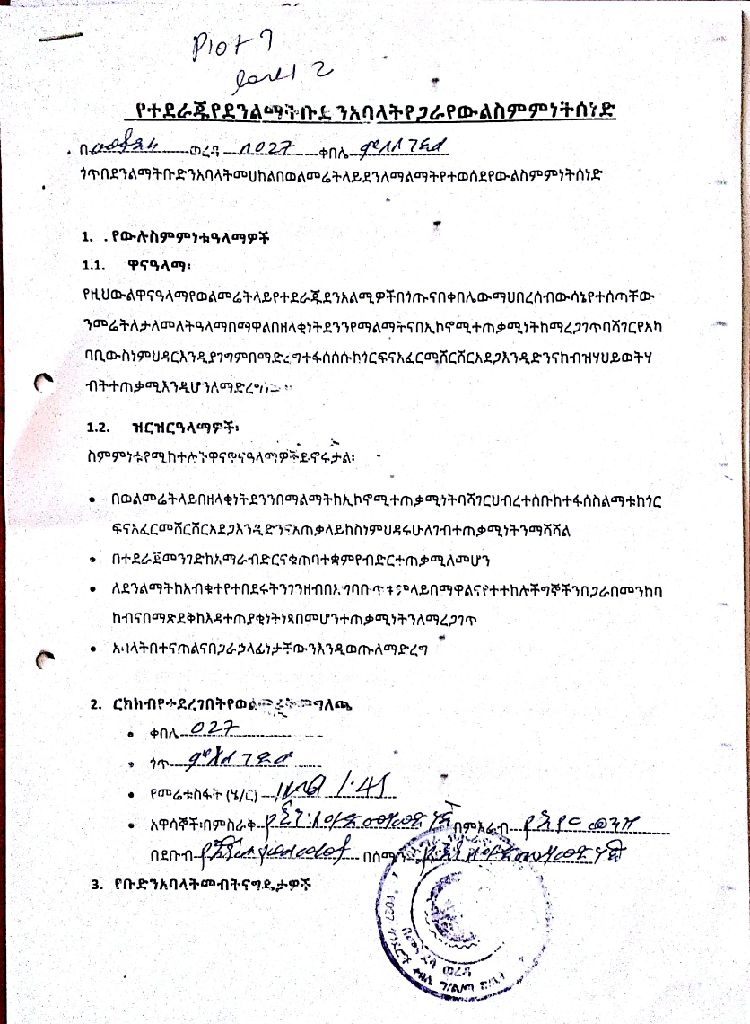 Plot 7
Parcel 2
የተደራጁየደንልማትቡድንአባላትየጋራየውልስምምነትሰነድ
በ ወረዳ 027 ቀበሌ
ጎጥበደንልማትቡድንአባላትመሀከልበወልመሬትላይደንለማልማትየተወሰደየውልስምምነትሰነድ
1. የውሉስምምነቱዓላማዎች
1.1. ዋናዓላማ፡
የዚህውልዋናዓላማየወልመሬትላይየተደራጁደንአልሚዎችበጎጡናበቀበሌውማህበረሰብውሳኔየተሰጣቸው
ንመሬትለታለመለትዓላማበማዋልበዘላቂነትደንንየማልማትናበኢኮኖሚተጠቃሚነትከማረጋገጥባሻገርየአካ
ባቢውስነምህዳርእንዲያገግምበማድረግተፋሰሱከጎርፍናአፈርመሸርሸርአደጋእንዲድንናከብዝሃህይወትሃ
ብትተጠቃሚእንዲሆንለማድረግ
1.2. ዝርዝርዓላማዎች፡
ስምምነቱየሚከተሉትዋናዋናዓላማዎችይኖሩታል፡
• በወልመሬትላይበዘላቂነትደንንበማልማትከኢኮኖሚተጠቃሚነትባሻገርህብረተሰቡከተፋሰስልማቱከጎር
ፍናአፈርመሸርሸርአደጋእንዲድንናአጠቃላይከስነምህዳሩሁለገብተጠቃሚነትንማሻሻል
• በተደራጀመንገድከአማራብድርናቁጠባተቋምየብድርተጠቃሚለመሆን
• ለደንልማትከአብቁተየተበደሩትንገንዘብበአግባቡ ላይበማዋልናየተተከሉችግኞችንበጋራበመንከባ
ከብናበማጽደቅከእዳተጠያቂነትነጻበመሆንተጠቃሚነትንለማረጋገጥ
• አባላትበተናጠልናበጋራኃላፊነታቸውንእንዲወጡለማድረግ
2. ርክክብየተደረገበትየወልመሬትመግለጫ
• ቀበሌ 027
• ጎጥ
• የመሬቱስፋት (ሄ/ር) 1.45
• አዋሳኞች፡በምስራቅ በምእራብ
በደቡብ በሰሜን
3. የቡድንአባላትመብትናግዴታዎች